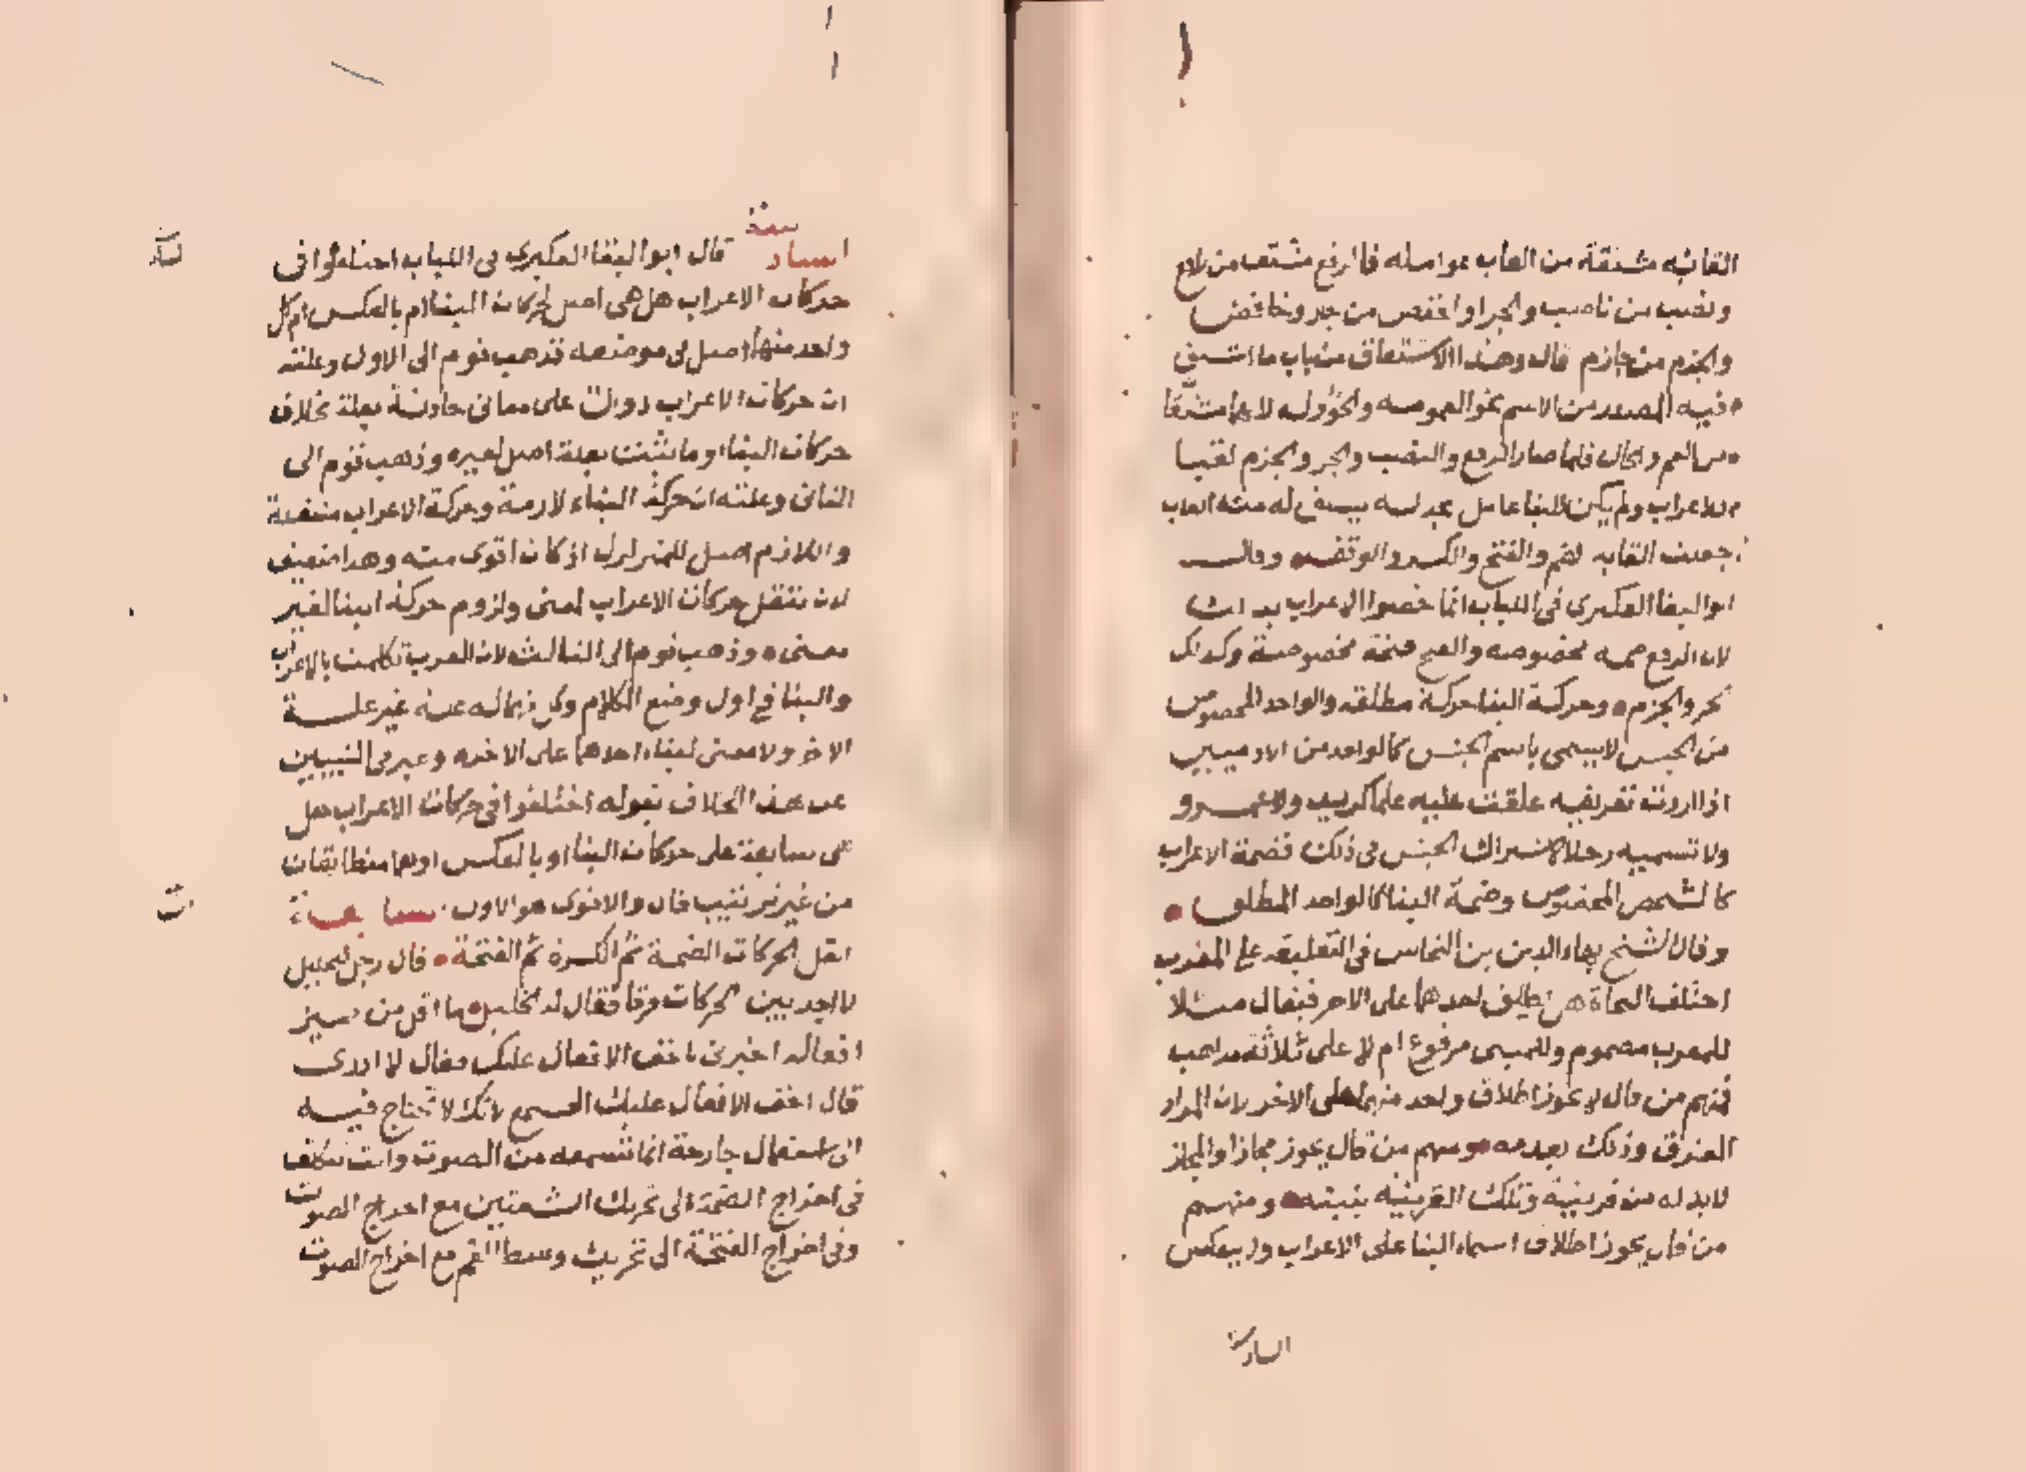 القابه مشتقة من القاب عوامله فالرفع مشتق من رافع
ونصب من ناصب والجر او الخفض من جار وخافض
والجزم من جازم قال وهذا الاشتقاق من باب ما اشتق
فيه المصدر من الاسم نحو العمومه والخؤوله لانهما مشتقا
من العم والخال فلما صار الرفع والنصب والجر والجزم لقبا
للاعراب ولم يكن للبنا عامل يحدثه يشتق له منه القاب
جعلت القابه الضم والفتح والكسر والوقف وقال
ابو البقا العكبري في اللباب انما خصوا الاعراب بذلك
لان الرفع ضمه مخصوصه والنصب فتحة مخصوصة وكذلك
الجر والجزم وحركة البنا حركة مطلقه والواحد المخصوص
من الجنس لا يسمى باسم الجنس كالواحد من الادميين
اذا اردت تعريفه علقت عليه علما كزيد وعمرو
ولا تسميه رجلا لاشتراك الجنس في ذلك فضمة الاعراب
كالشخص المخصوص وضمة البنا كالواحد المطلق
وقال الشيخ بهاء الدين بن النحاس في التعليقه على المقرب
اختلف النحاة هل يطلق احدهما على الاخر فيقال مثلا
للمعرب مضموم وللمبنى مرفوع ام لا على ثلاثة مذاهب
فمنهم من قال لا يجوز اطلاق واحد منهما على الاخر لان المراد
الفرق وذلك يعدمه ومنهم من قال يجوز مجازا والمجاز
لابد له من قرينة وتلك القرينه تبينه ومنهم
من قال يجوز اطلاق اسماء البنا على الاعراب ولا ينعكس
السادسة
السادسة قال ابو البقا العكبري في اللباب اختلفوا في
حركات الاعراب هل هي اصل لحركات البنا ام بالعكس ام كل
واحد منهما اصل في موضعه فذهب قوم الى الاول وعلته
ان حركات الاعراب دوال على معاني حادثة بعلة بخلاف
حركات البنا وما ثبت بعلة اصل لغيره وذهب قوم الى
الثانى وعلته ان حركة البناء لازمة وحركة الاعراب منتقلة
واللازم اصل للمتزلزل اذ كان اقوى منه وهذا ضعيف
لان تنقل حركات الاعراب لمعنى ولزوم حركة البنا لغير
معنى وذهب قوم الى الثالث لان العرب تكلمت بالاعراب
والبنا في اول وضع الكلام وكل منهما له علة غير علة
الاخر ولا معنى لبناء احدهما على الاخر وعبر في التبيين
عن هذا الخلاف بقوله اختلفوا في حركات الاعراب هل
هى سابقة على حركات البنا او بالعكس او هما متطابقات
من غير ترتيب قال والاقوى هو الاول السابعة
اثقل الحركات الضمة ثم الكسرة ثم الفتحة قال رجل للخليل
لا اجد بين الحركات فرقا فقال له الخليل ما اقل من يميز
افعاله اخبرنى باخف الافعال عليك فقال لا ادرى
قال اخف الافعال عليك السمع لانك لا تحتاج فيه
الى استعمال جارحة انما تسمعه من الصوت وانت تتكلف
في اخراج الضمة الى تحريك الشفتين مع اخراج الصوت
وفى اخراج الفتحة الى تحريك وسط الفم مع اخراج الصوت